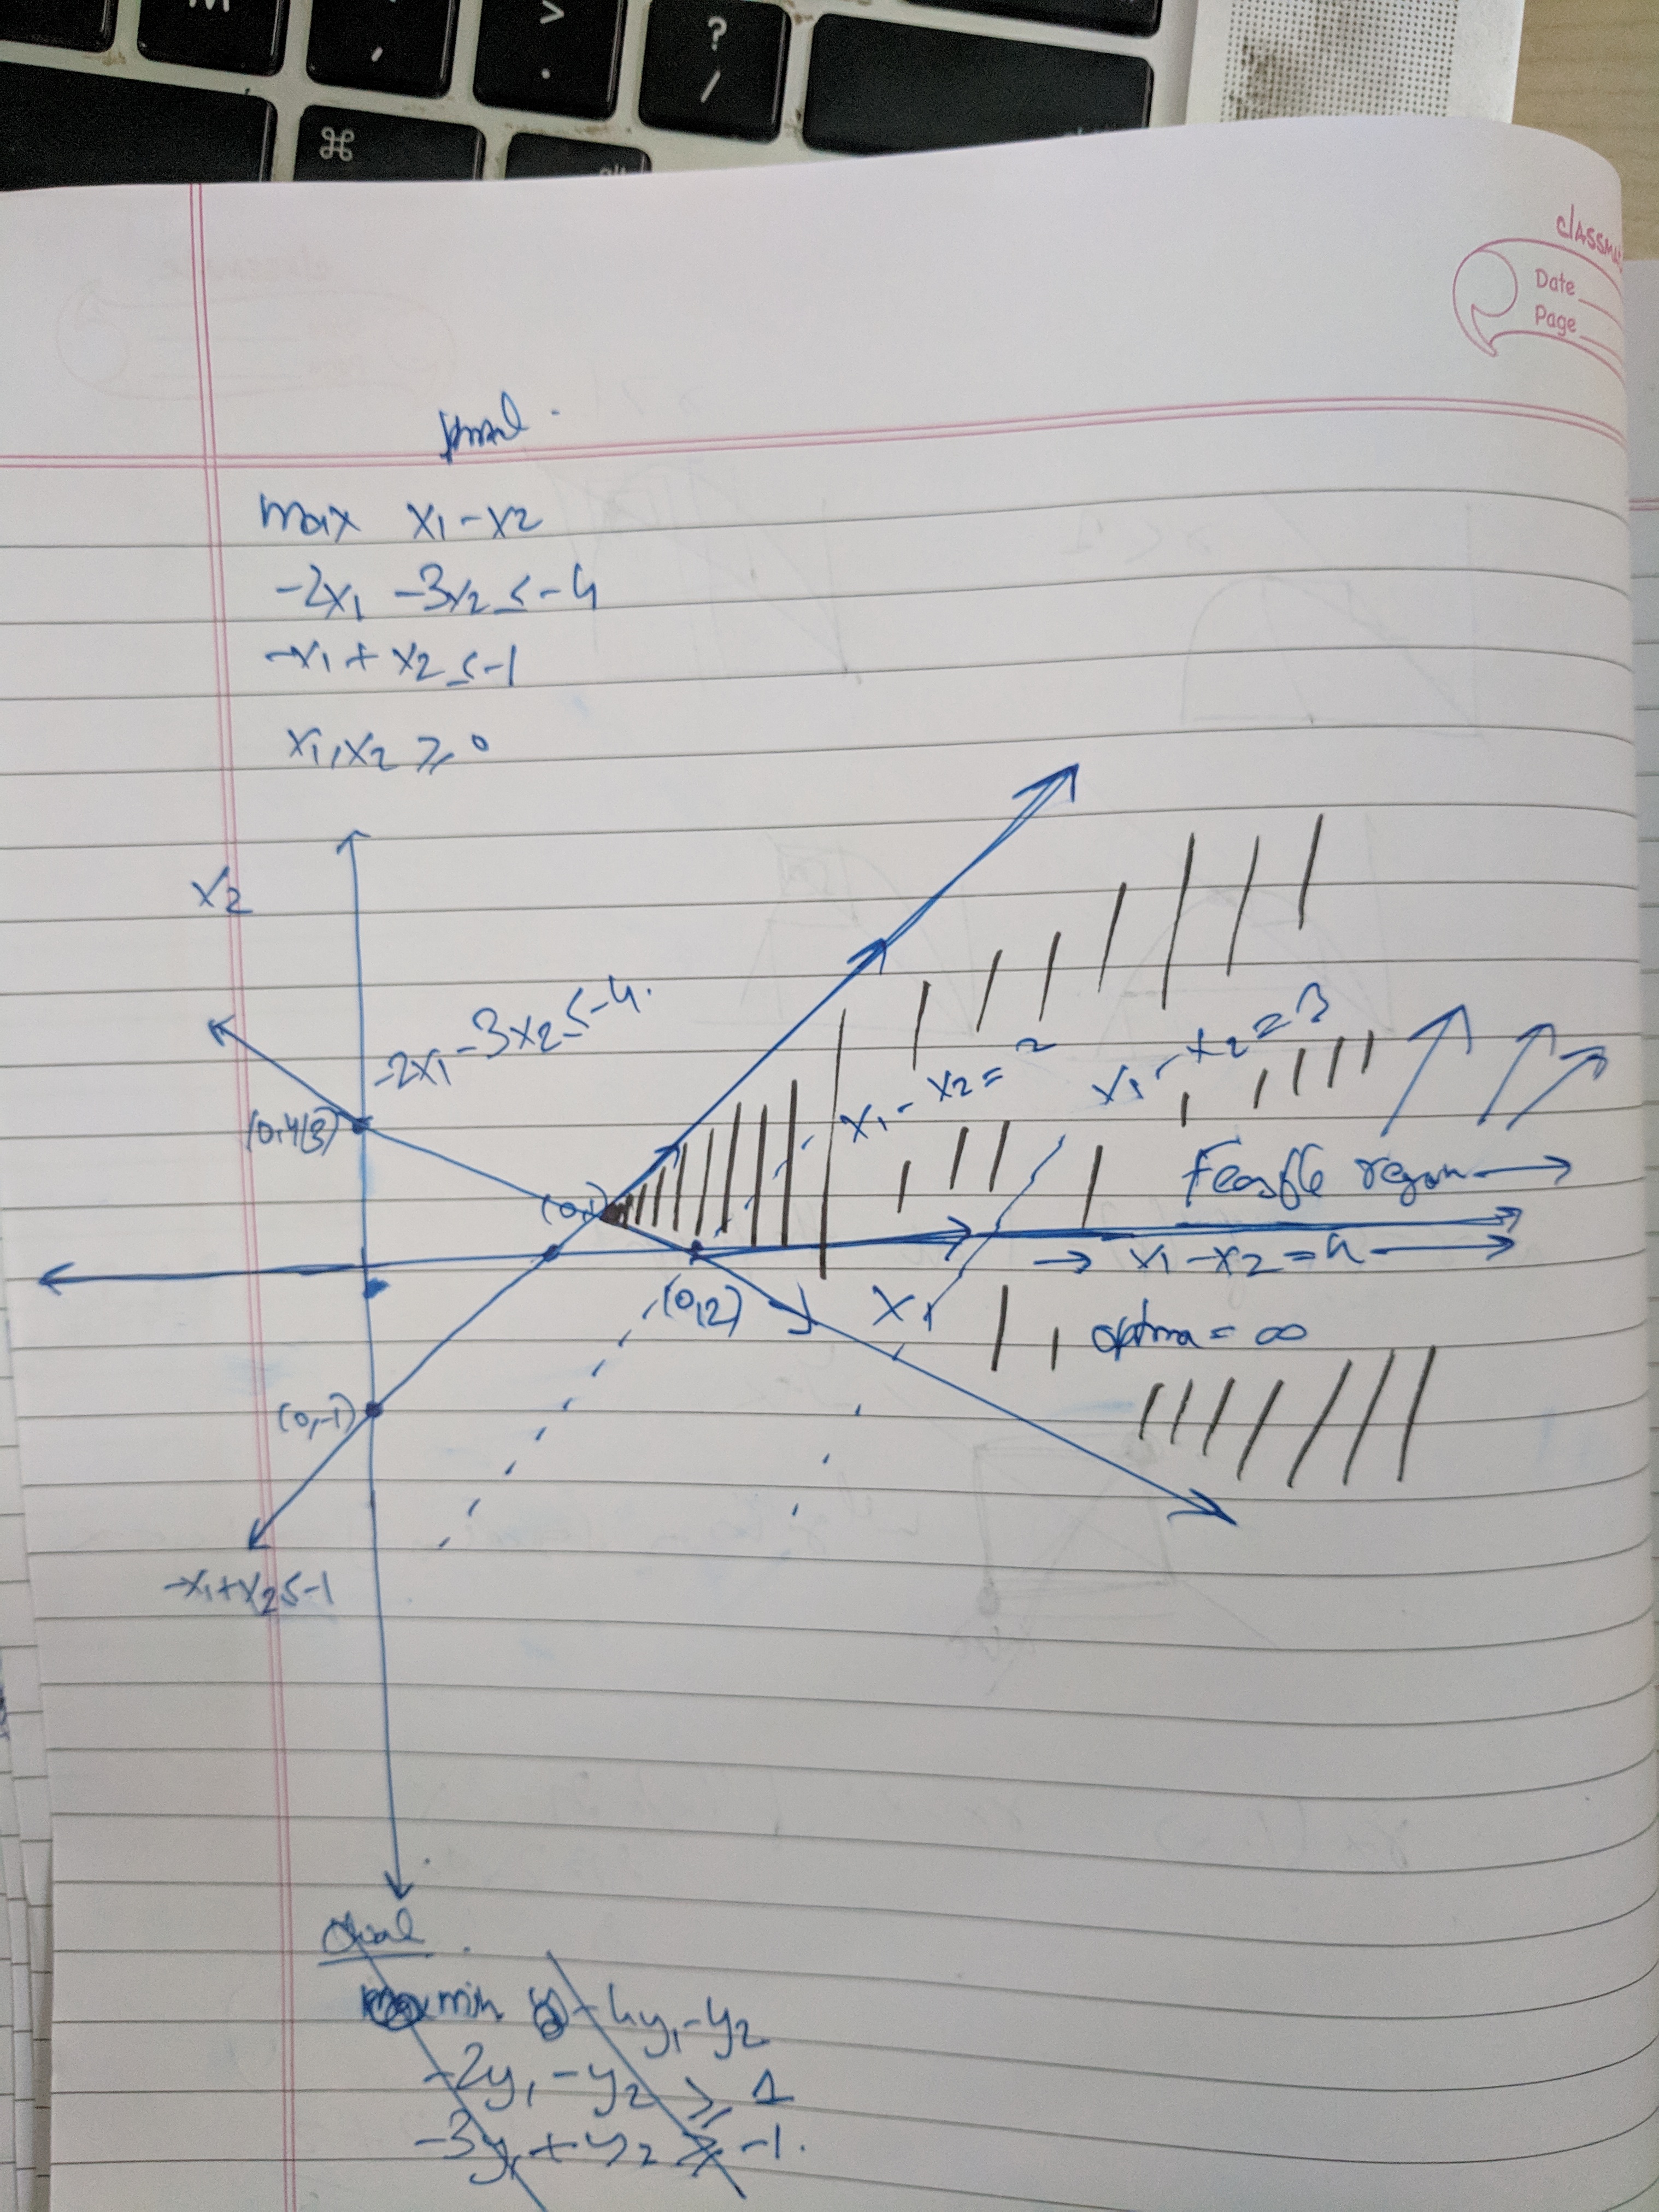 ?
/
>
.
,
⌘
classm
Date
Page
primal.
max x1-x2
-2x1 -3x2 ≤ -4
-x1 + x2 ≤ -1
x1,x2 ≥ 0
x2
-2x1 -3x2 ≤ -4.
(0,4/3)
x1 - x2 =
x1 - x2 = 3
Feasible region →
(0,2)
x1
→ x1-x2 = 4 →
optima = ∞
(0,-1)
-x1+x2 ≤ -1
dual
min -4y1-y2
-2y1 -y2 ≥ 1
-3y1 + y2 ≥ -1.